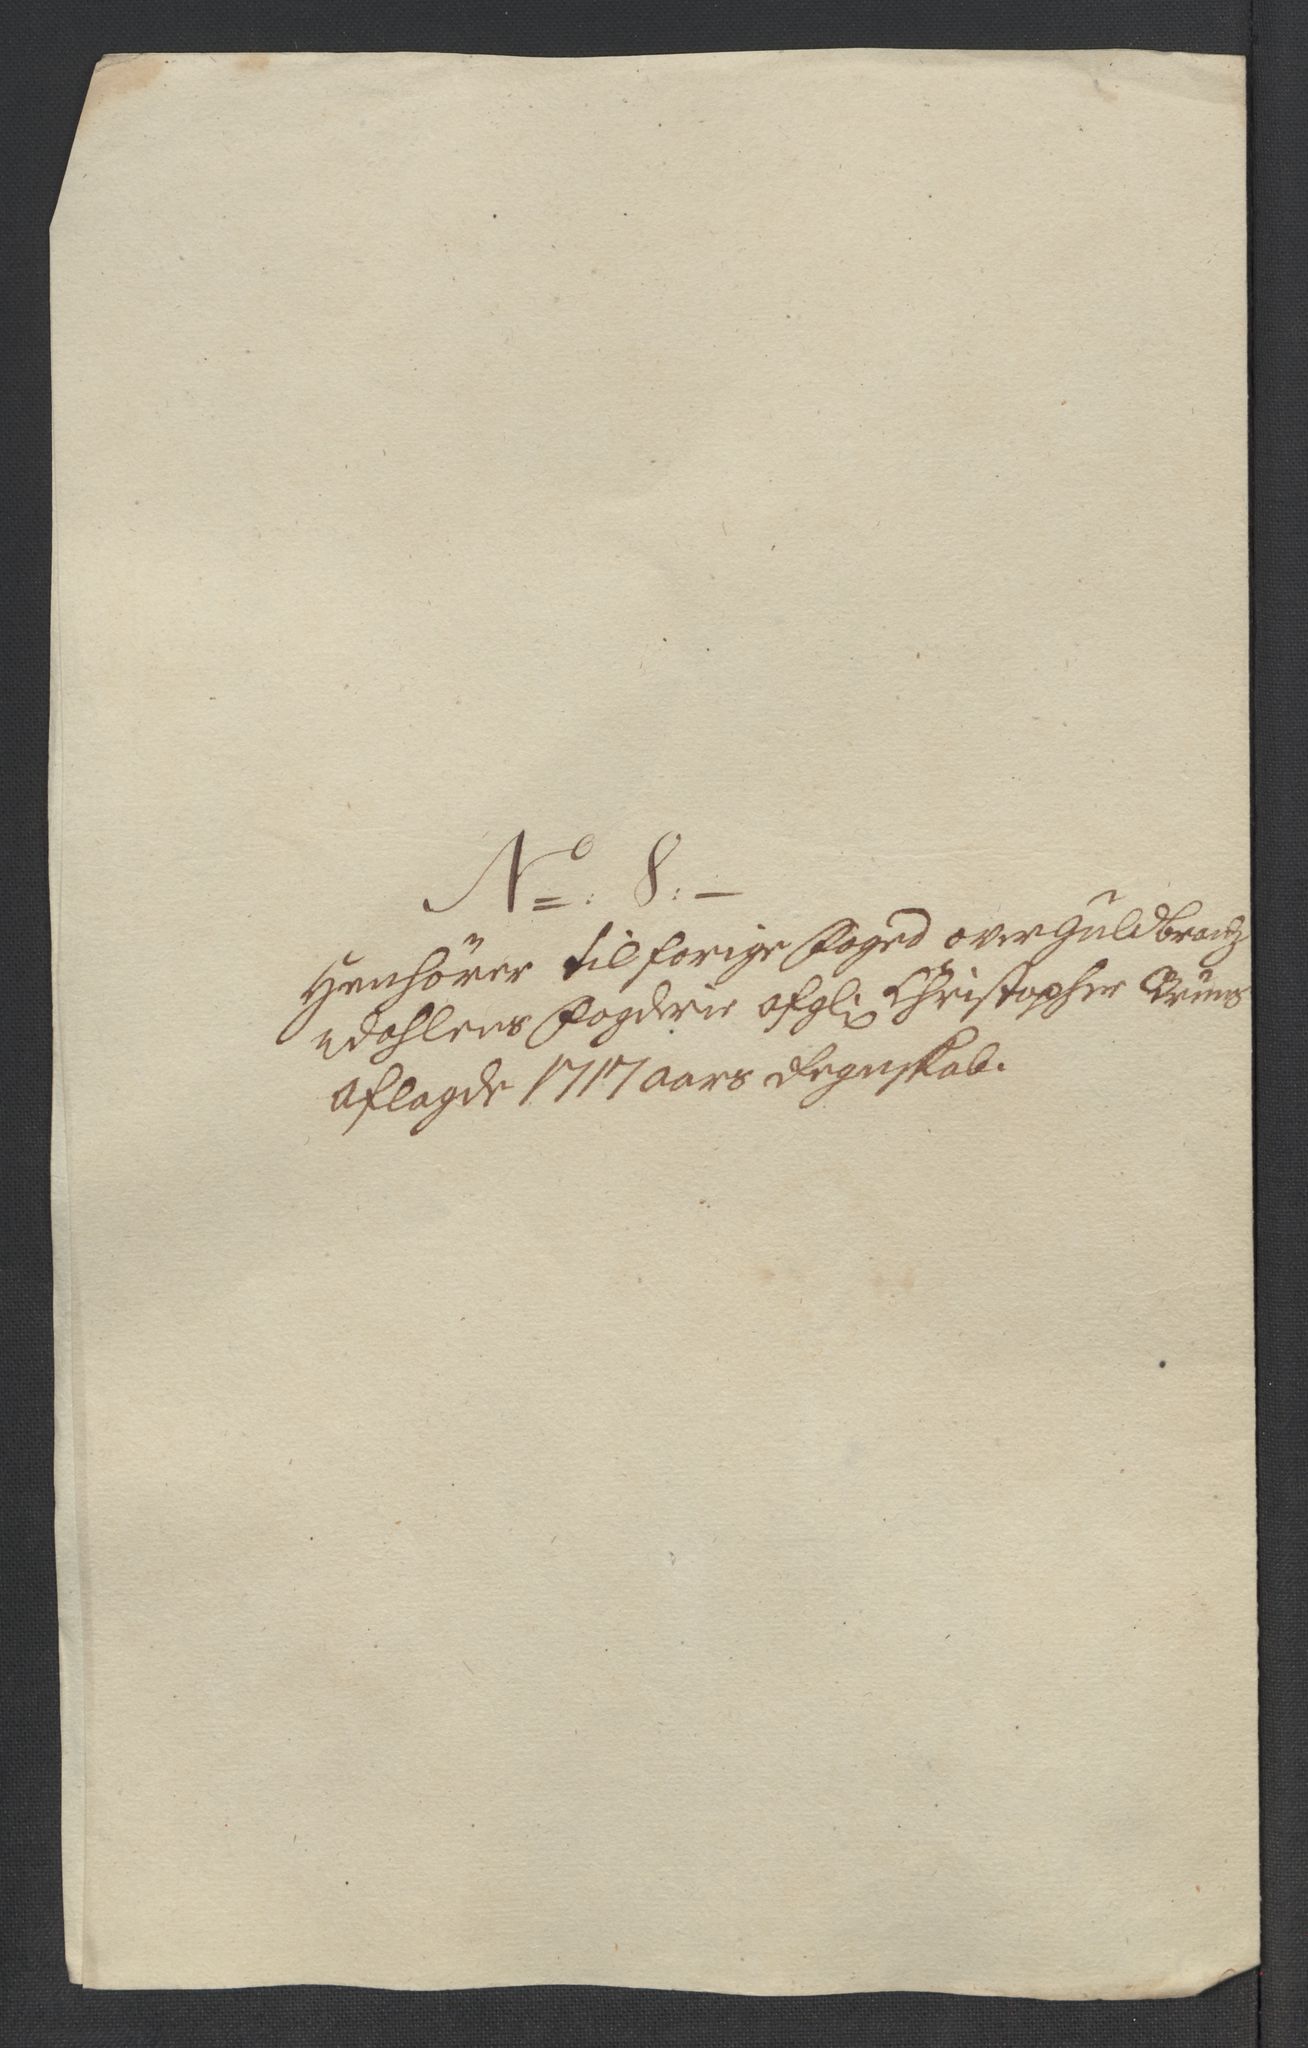 No: 8:-
Henhörer til forige Foged over Guldbrandz
dahlens Fogderie afgl: Christopher Bruuns
Aflagde 1717 Aars Regnskab.